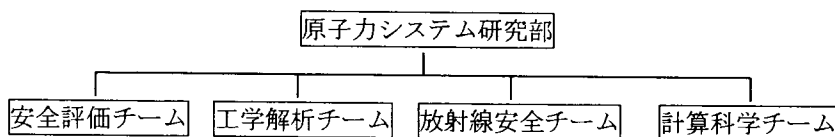 原子力システム研究部
安全評価チーム 工学解析チーム 放射線安全チーム 計算科学チーム